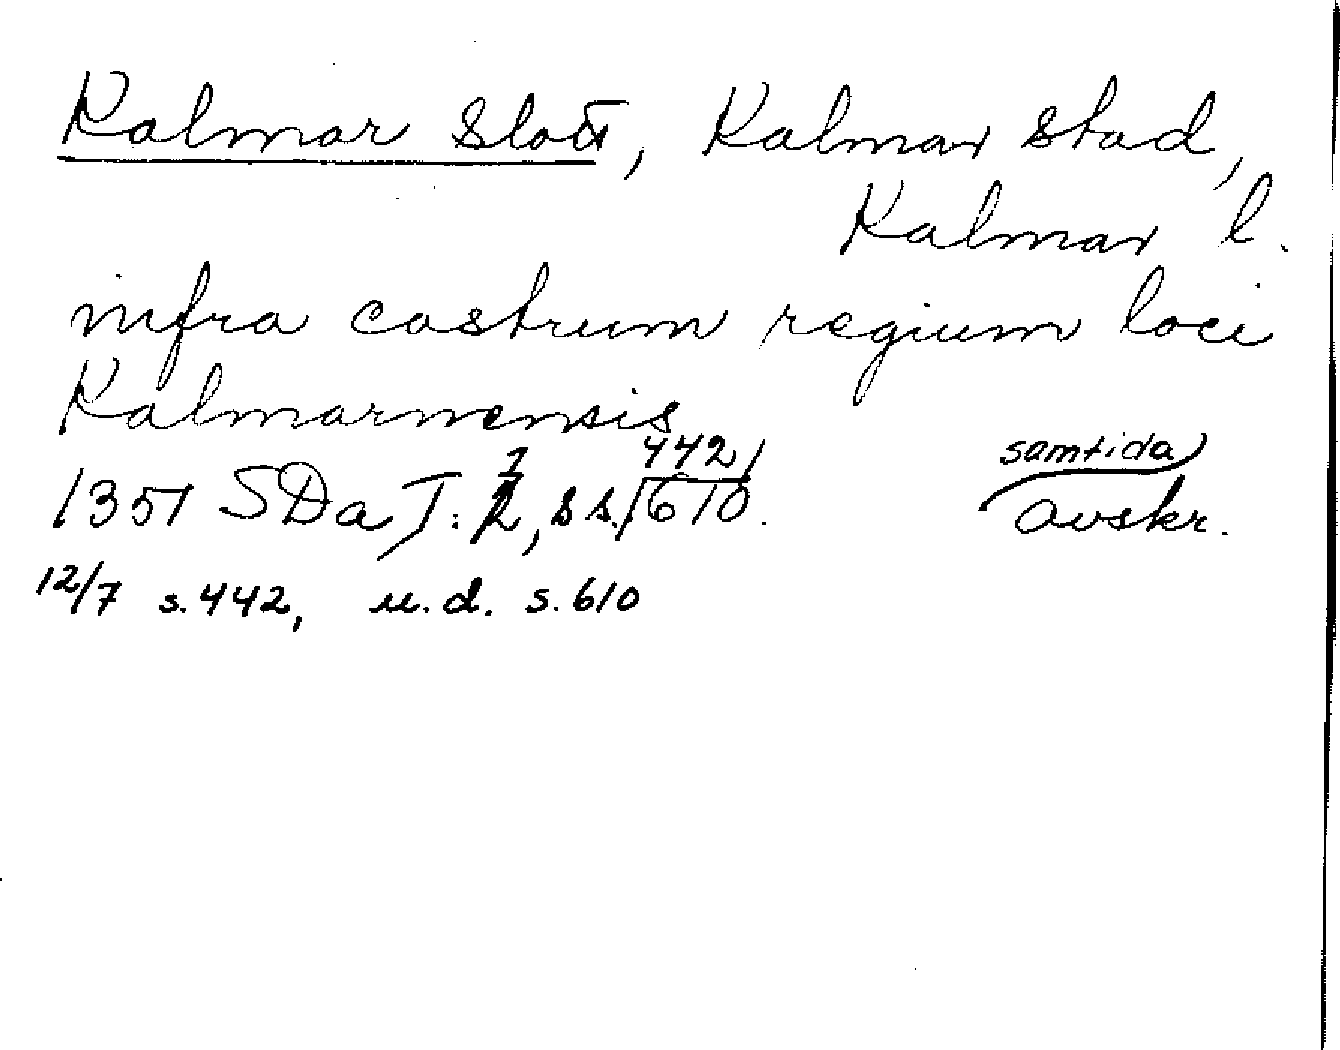 Kalmar Slott, Kalmar stad,
Kalmar l.
infra castrum regium loci
Kalmarnensis
442 samtida
1351 SDa J: 1, ss. 610. avskr.
12/7 s. 442, u.d. s. 610